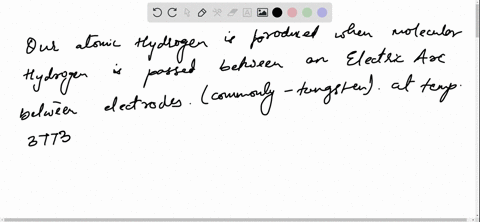 Our atomic Hydrogen is produced when molecular
Hydrogen is passed between an Electric Arc
between electrodes. (commonly - tungsten). at temp.
3773